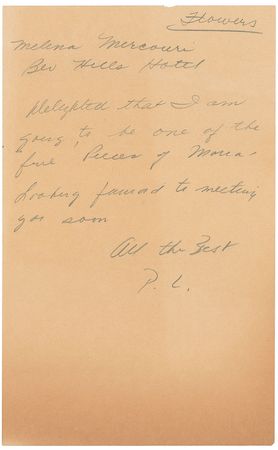 Flowers
Melina Mercouri
Bev Hills Hotel
Delighted that I am
going to be one of the
five Pieces of Maria.
Looking forward to meeting
you soon
All the Best
P. L.